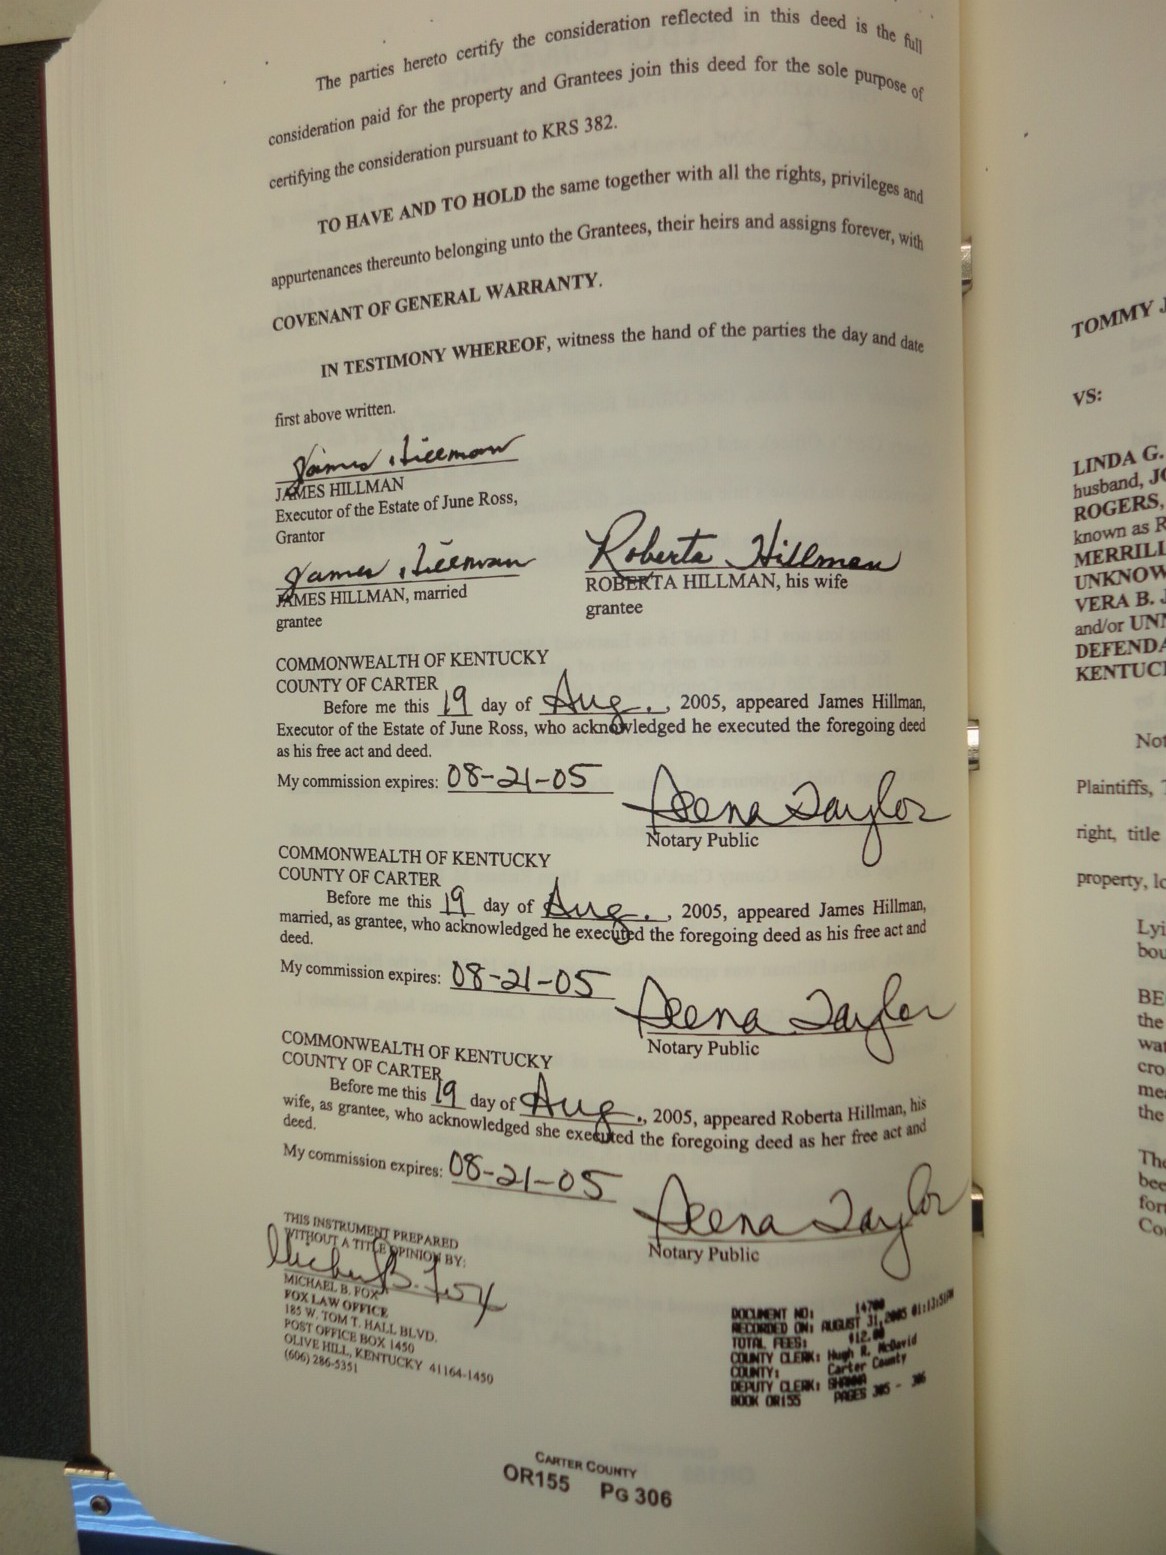 The parties hereto certify the consideration reflected in this deed is the full
consideration paid for the property and Grantees join this deed for the sole purpose of
certifying the consideration pursuant to KRS 382.
TO HAVE AND TO HOLD the same together with all the rights, privileges and
appurtenances thereunto belonging unto the Grantees, their heirs and assigns forever, with
COVENANT OF GENERAL WARRANTY.
IN TESTIMONY WHEREOF, witness the hand of the parties the day and date
first above written.
James Hillman
JAMES HILLMAN
Executor of the Estate of June Ross,
Grantor
James Hillman Roberta Hillman
JAMES HILLMAN, married ROBERTA HILLMAN, his wife
grantee grantee
COMMONWEALTH OF KENTUCKY
COUNTY OF CARTER
Before me this 19 day of Aug., 2005, appeared James Hillman,
Executor of the Estate of June Ross, who acknowledged he executed the foregoing deed
as his free act and deed.
My commission expires: 08-21-05 Deena Taylor
Notary Public
COMMONWEALTH OF KENTUCKY
COUNTY OF CARTER
Before me this 19 day of Aug., 2005, appeared James Hillman,
married, as grantee, who acknowledged he executed the foregoing deed as his free act and
deed.
My commission expires: 08-21-05 Deena Taylor
Notary Public
COMMONWEALTH OF KENTUCKY
COUNTY OF CARTER
Before me this 19 day of Aug., 2005, appeared Roberta Hillman, his
wife, as grantee, who acknowledged she executed the foregoing deed as her free act and
deed.
My commission expires: 08-21-05 Deena Taylor
Notary Public
THIS INSTRUMENT PREPARED
WITHOUT A TITLE OPINION BY:
Michael B. Fox
MICHAEL B. FOX
FOX LAW OFFICE
185 W. TOM T. HALL BLVD.
POST OFFICE BOX 1450
OLIVE HILL, KENTUCKY 41164-1450
(606) 286-5351
DOCUMENT NO: 14700
RECORDED ON: AUGUST 31, 2005 01:13:51PM
TOTAL FEES: $12.00
COUNTY CLERK: Hugh R. McDavid
COUNTY: Carter County
DEPUTY CLERK: SHANNA
BOOK OR155 PAGES 305 - 306
CARTER COUNTY
OR155 PG 306
TOMMY J
VS:
LINDA G.
husband, JO
ROGERS,
known as R
MERRILL
UNKNOW
VERA B. J
and/or UNK
DEFENDA
KENTUC
Not
Plaintiffs,
right, title
property, lo
Lyi
bou
BE
the
wat
cro
mea
the
The
bee
for
Co